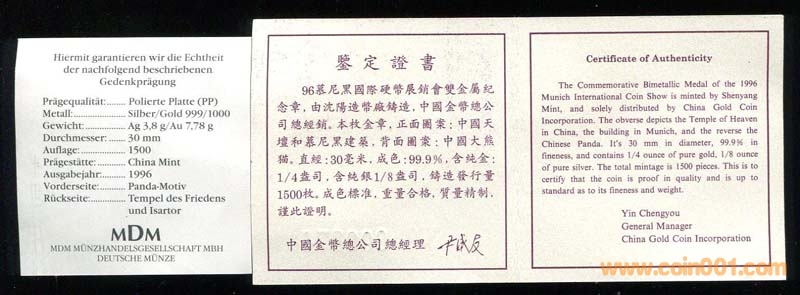 Hiermit garantieren wir die Echtheit
der nachfolgend beschriebenen
Gedenkprägung
Prägequalität:....... Polierte Platte (PP)
Metall:................. Silber/Gold 999/1000
Gewicht:............. Ag 3,8 g/Au 7,78 g
Durchmesser:..... 30 mm
Auflage:.............. 1500
Prägestätte:......... China Mint
Ausgabejahr:....... 1996
Vorderseite:......... Panda-Motiv
Rückseite:............ Tempel des Friedens
und Isartor
MDM
MDM MÜNZHANDELSGESELLSCHAFT MBH
DEUTSCHE MÜNZE
鑒定證書
96慕尼黑國際硬幣展銷會雙金屬紀
念章，由沈陽造幣廠鑄造，中國金幣總公
司總經銷。本枚金章，正面圖案：中國天
壇和慕尼黑建築，背面圖案：中國大熊
猫。直經：30毫米，成色：99.9%，含純金：
1/4盎司，含純銀1/8盎司，鑄造發行量
1500枚。成色標准，重量合格，質量精制，
謹此證明。
中國金幣總公司總經理
Certificate of Authenticity
The Commemorative Bimetallic Medal of the 1996
Munich International Coin Show is minted by Shenyang
Mint, and solely distributed by China Gold Coin
Incorporation. The obverse depicts the Temple of Heaven
in China, the building in Munich, and the reverse the
Chinese Panda. It's 30 mm in diameter, 99.9% in
fineness, and contains 1/4 ounce of pure gold, 1/8 ounce
of pure silver. The total mintage is 1500 pieces. This is to
certify that the coin is proof in quality and is up to
standard as to its fineness and weight.
Yin Chengyou
General Manager
China Gold Coin Incorporation
www.coin001.com